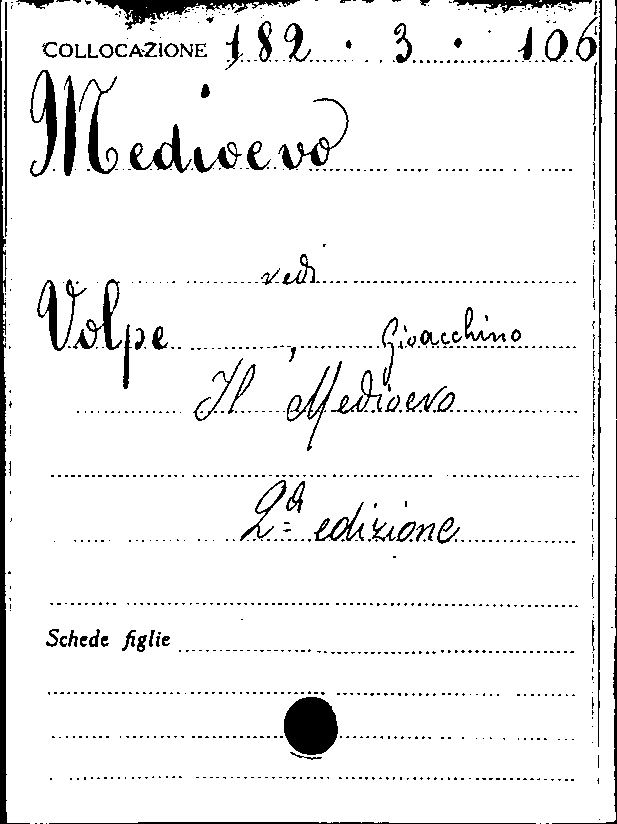 COLLOCAZIONE 182 . 3 . 106
Medioevo
vedi
Volpe , Gioacchino
Il Medioevo
2ª edizione
Schede figlie